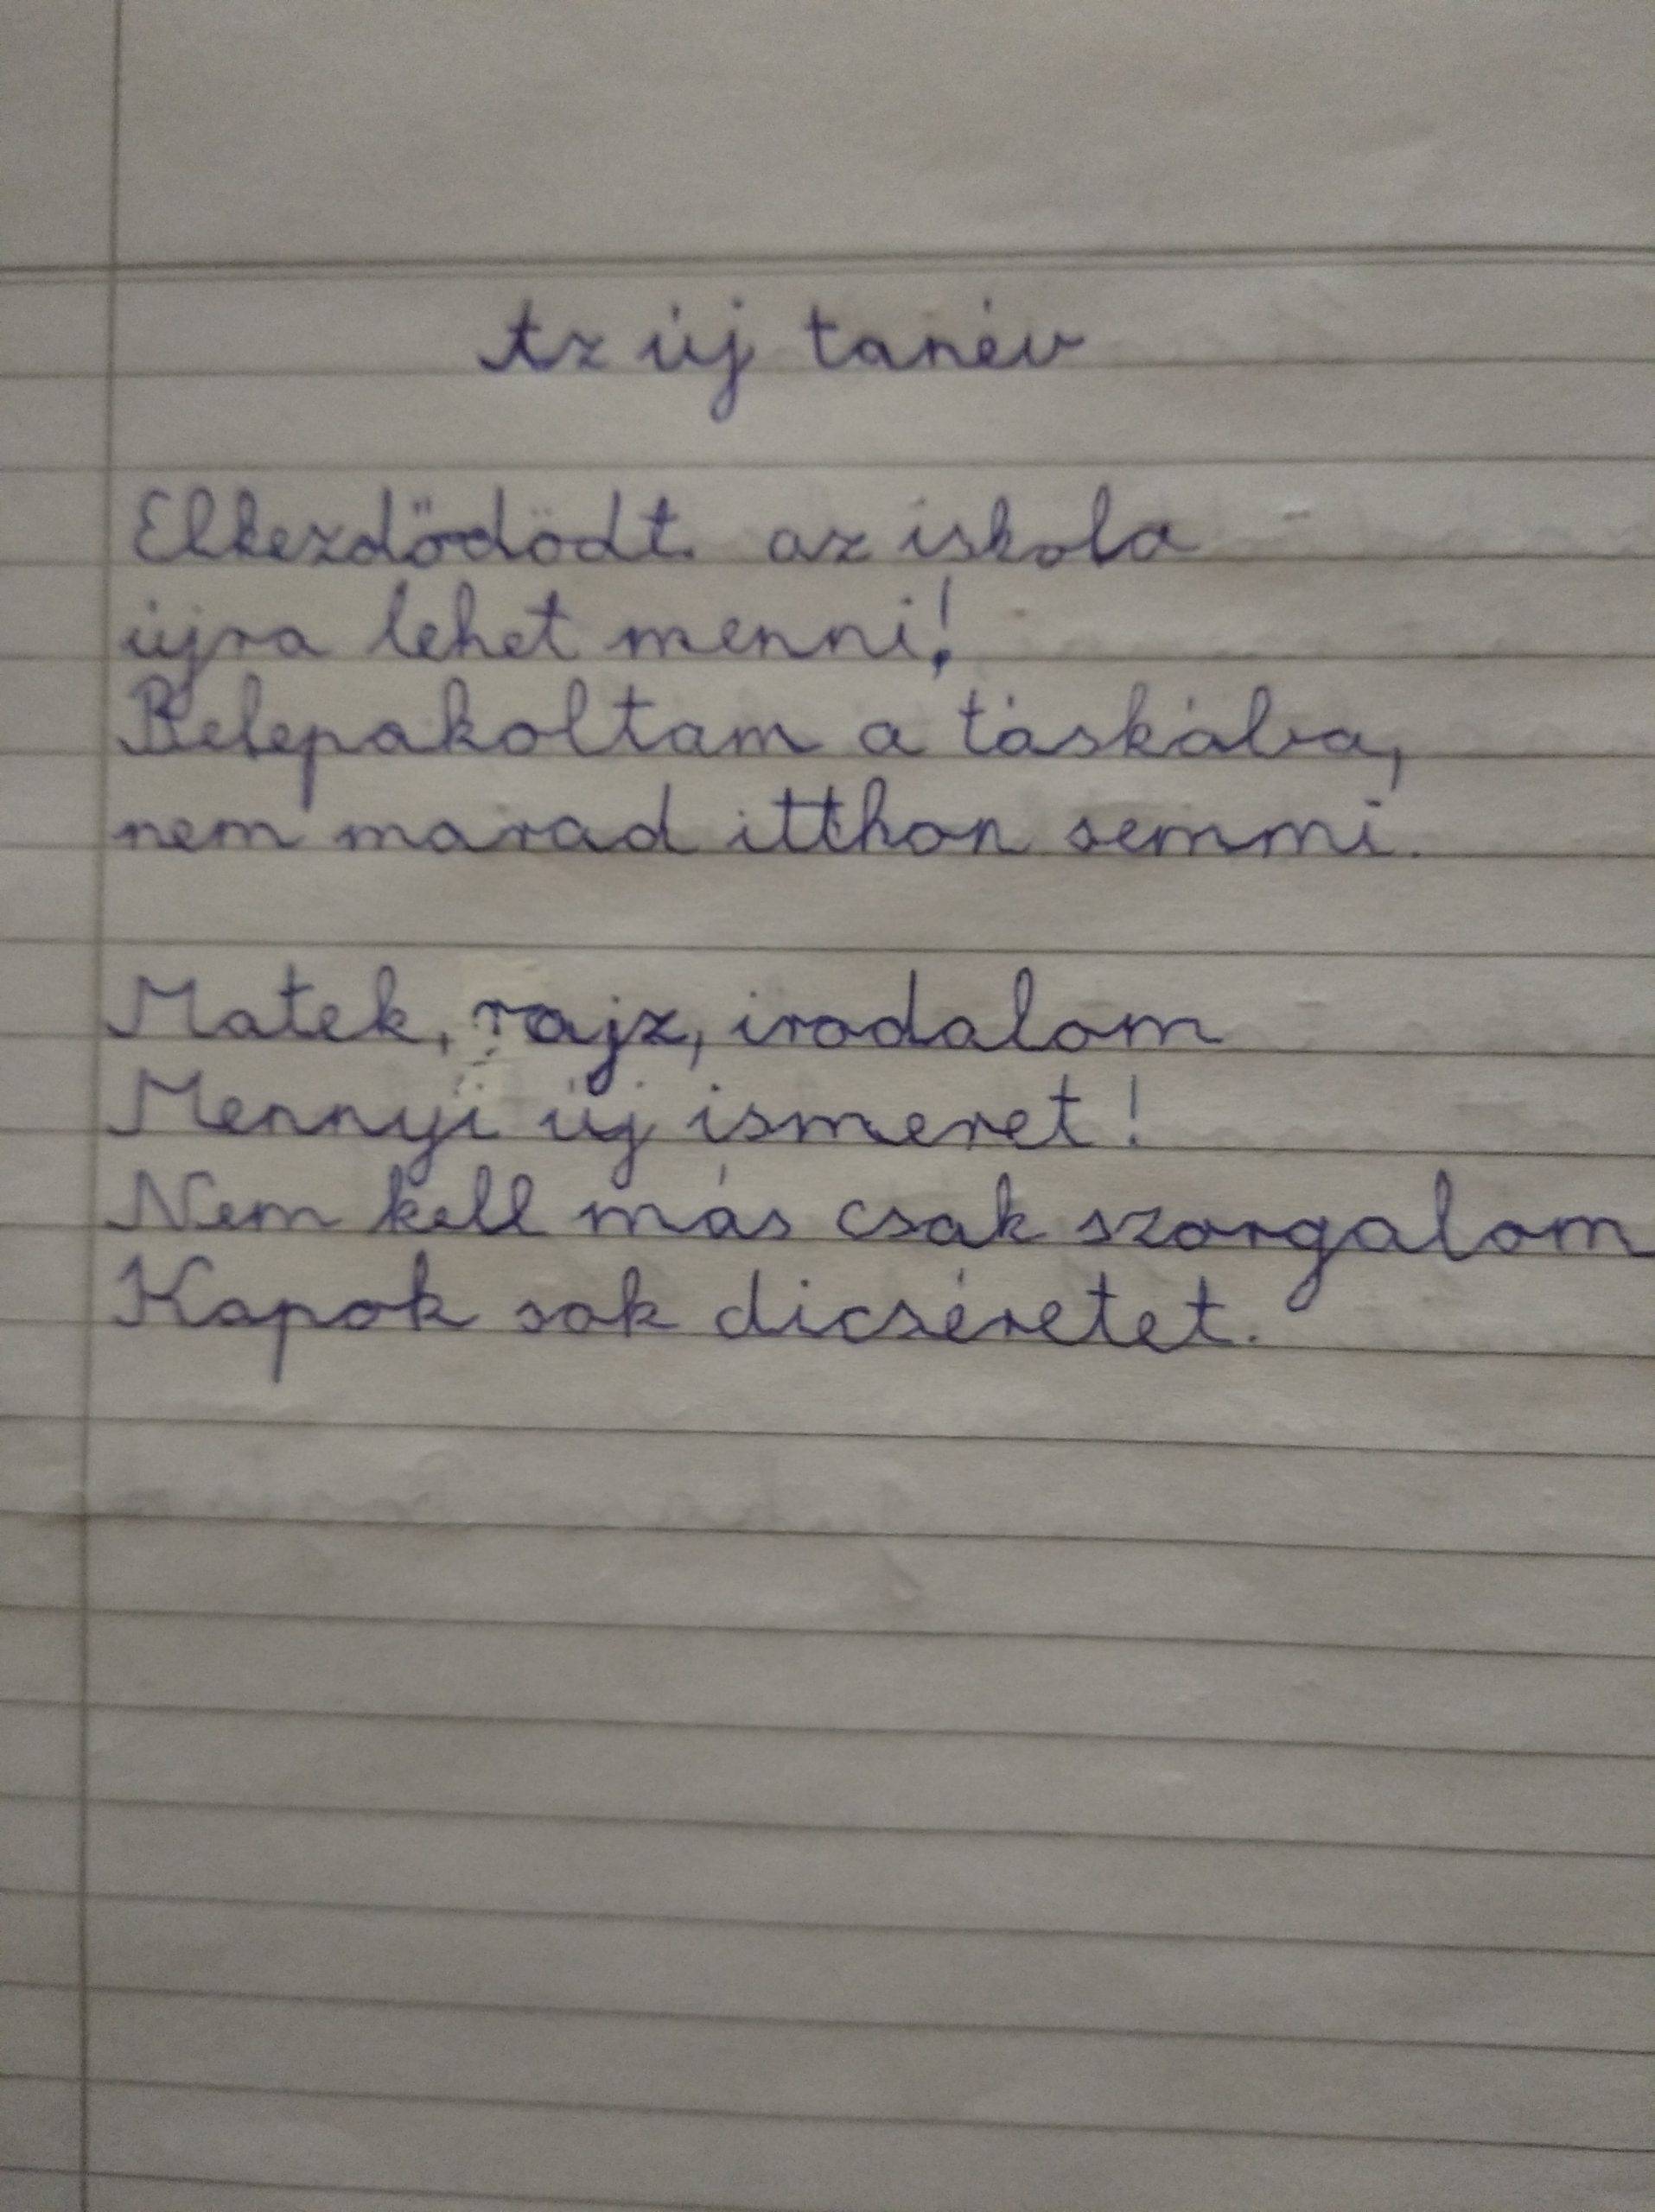 Az új tanév
Elkezdődödt az iskola
újra lehet menni!
Belepakoltam a táskába,
nem marad itthon semmi.
Matek, rajz, irodalom
Mennyi új ismeret!
Nem kell más csak szorgalom
Kapok sok dicséretet.